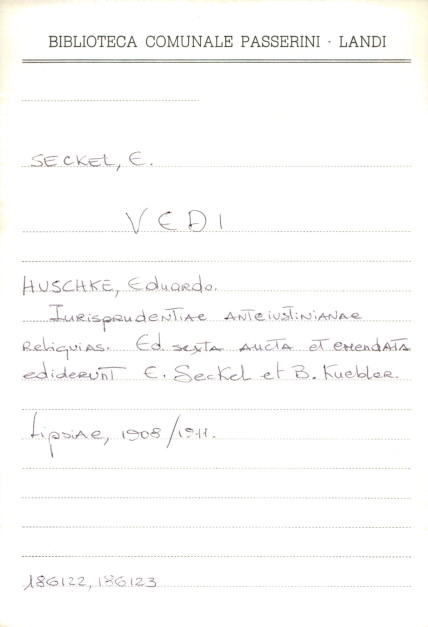 BIBLIOTECA COMUNALE PASSERINI - LANDI
SECKEL, E.
VEDI
HUSCHKE, Eduardo.
Iurisprudentiae anteiustinianae
reliquias. Ed. sexta aucta et emendata
ediderunt E. Seckel et B. Kuebler.
Lipsiae, 1908/1911.
186122, 186123